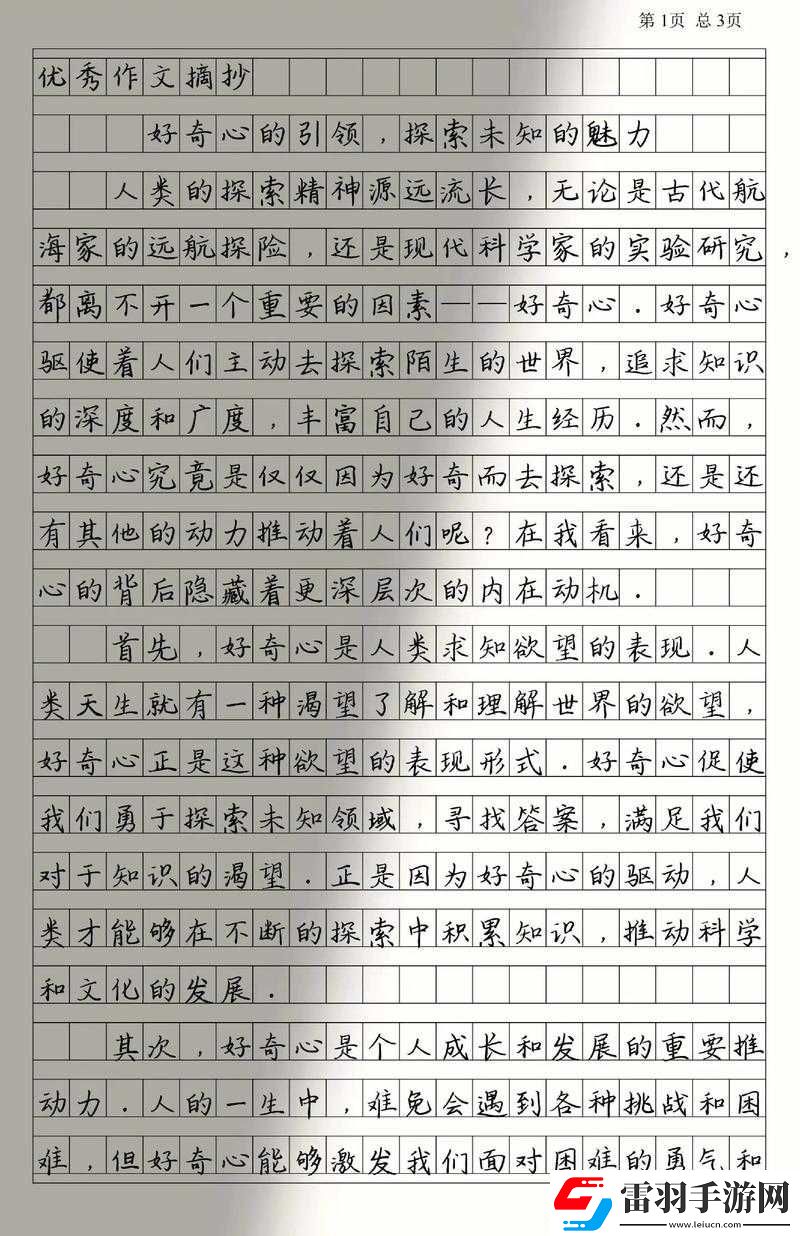 第1页 总3页
优秀作文摘抄
好奇心的引领，探索未知的魅力
人类的探索精神源远流长，无论是古代航
海家的远航探险，还是现代科学家的实验研究，
都离不开一个重要的因素——好奇心．好奇心
驱使着人们主动去探索陌生的世界，追求知识
的深度和广度，丰富自己的人生经历．然而，
好奇心究竟是仅仅因为好奇而去探索，还是还
有其他的动力推动着人们呢？在我看来，好奇
心的背后隐藏着更深层次的内在动机．
首先，好奇心是人类求知欲望的表现．人
类天生就有一种渴望了解和理解世界的欲望，
好奇心正是这种欲望的表现形式．好奇心促使
我们勇于探索未知领域，寻找答案，满足我们
对于知识的渴望．正是因为好奇心的驱动，人
类才能够在不断的探索中积累知识，推动科学
和文化的发展．
其次，好奇心是个人成长和发展的重要推
动力．人的一生中，难免会遇到各种挑战和困
难，但好奇心能够激发我们面对困难的勇气和
雷羽手游网
www.leiucn.com